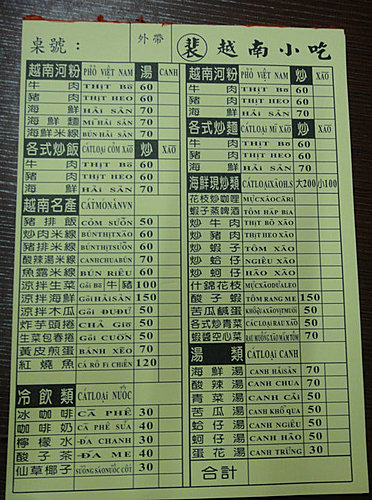 桌號： 外帶 裴 越南小吃
越南河粉 PHỞ VIỆT NAM 湯 CANH
牛 肉 THỊT BÒ 60
豬 肉 THỊT HEO 60
海 鮮 HẢI SẢN 70
海 鮮 麵 MÌ HẢI SẢN 70
海鮮米線 BÚN HẢI SẢN 70
各式炒飯 CÁTLOẠI CƠM XÀO 炒 XÀO
牛 肉 THỊT BÒ 60
豬 肉 THỊT HEO 60
海 鮮 HẢI SẢN 70
越南名產 CÁTMÓNĂNVN
豬 排 飯 CƠM SUỒN 50
炒肉米線 BÚNTHỊTXÀO 60
豬排米線 BÚNTHỊTSUỒN 60
酸辣湯米線 CANHCHUABÚN 70
魚露米線 BÚN RIÊU 60
涼拌生菜 GỎI BÒ 牛 豬 100
涼拌海鮮 GỎIHẢISẢN 150
涼拌木瓜 GỎI ĐUĐỦ 50
炸芋頭捲 CHẢ GIÒ 50
生菜包春捲 GỎI CUỐN 50
黃皮煎蛋 BÁNH XÈO 70
紅 燒 魚 CÁ RÔ FI CHIÊN 120
冷 飲 類 CÁTLOẠI NUỐC
冰 咖 啡 CÀ PHÊ 30
咖 啡 奶 CÀ PHÊ SỮA 40
檸 檬 水 ĐÁ CHANH 30
酸 子 茶 ĐÁ ME 40
仙草椰子 SUÔNG SÁO NUỐC CỐT 30
越南河粉 PHỞ VIỆT NAM 炒 XÀO
牛 肉 THỊT BÒ 60
豬 肉 THỊT HEO 60
海 鮮 HẢI SẢN 70
各式炒麵 CÁTLOẠI MÌ XÀO 炒 XÀO
牛 肉 THỊT BÒ 60
豬 肉 THỊT HEO 60
海 鮮 HẢI SẢN 70
海鮮現炒類 CÁTLOẠIXÀOH.S 大200 小100
花枝炒咖哩 MỰCXÀOCÀRI
蝦子蒸啤酒 TÔM HẤP BIA
炒 牛 肉 THỊT BÒ XÀO
炒 豬 肉 THỊT HEO XÀO
炒 蝦 子 TÔM XÀO
炒 蛤 仔 NGIÊU XÀO
炒 蚵 仔 HÀO XÀO
什錦花枝 MỰCXÀODƯALEO
酸 子 蝦 TÔM RANG ME 150
苦瓜鹹蛋 50
各式炒青菜 CÁCLOẠI RAU XÀO 50
蝦醬空心菜 RAU MUỐNG XÀO MẮM TÔM 70
湯 類 CÁTLOẠI CANH
海 鮮 湯 CANH HẢISẢN 70
酸 辣 湯 CANH CHUA 70
青 菜 湯 CANH CẢI 50
苦 瓜 湯 CANH KHỔ QUA 50
蛤 仔 湯 CANH NGIÊU 50
蚵 仔 湯 CANH HÀO 50
蛋 花 湯 CANH TRỨNG 30
合計